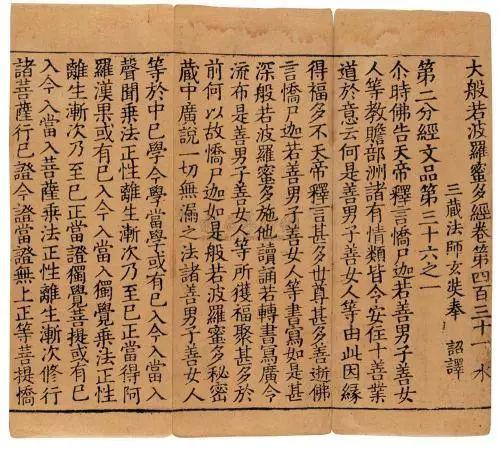 大般若波羅蜜多經卷第四百三十一 水
三藏法師玄奘奉 詔譯
第二分經文品第三十六之一
尒時佛告天帝釋言憍尸迦若善男子善女
人等教贍部洲諸有情類皆令安住十善業
道於意云何是善男子善女人等由此因緣
得福多不天帝釋言甚多世尊甚多善逝佛
言憍尸迦若善男子善女人等書寫如是甚
深般若波羅蜜多施他讀誦若轉書寫廣令
流布是善男子善女人等所獲福聚甚多於
前何以故憍尸迦如是般若波羅蜜多秘密
藏中廣說一切無漏之法諸善男子善女人
等於中已學今學當學或有已入今入當入
聲聞乘法正性離生漸次乃至已正當得阿
羅漢果或有已入今入當入獨覺乘法正性
離生漸次乃至已正當證獨覺菩提或有已
入今入當入菩薩乘法正性離生漸次修行
諸菩薩行已證今證當證無上正等菩提憍